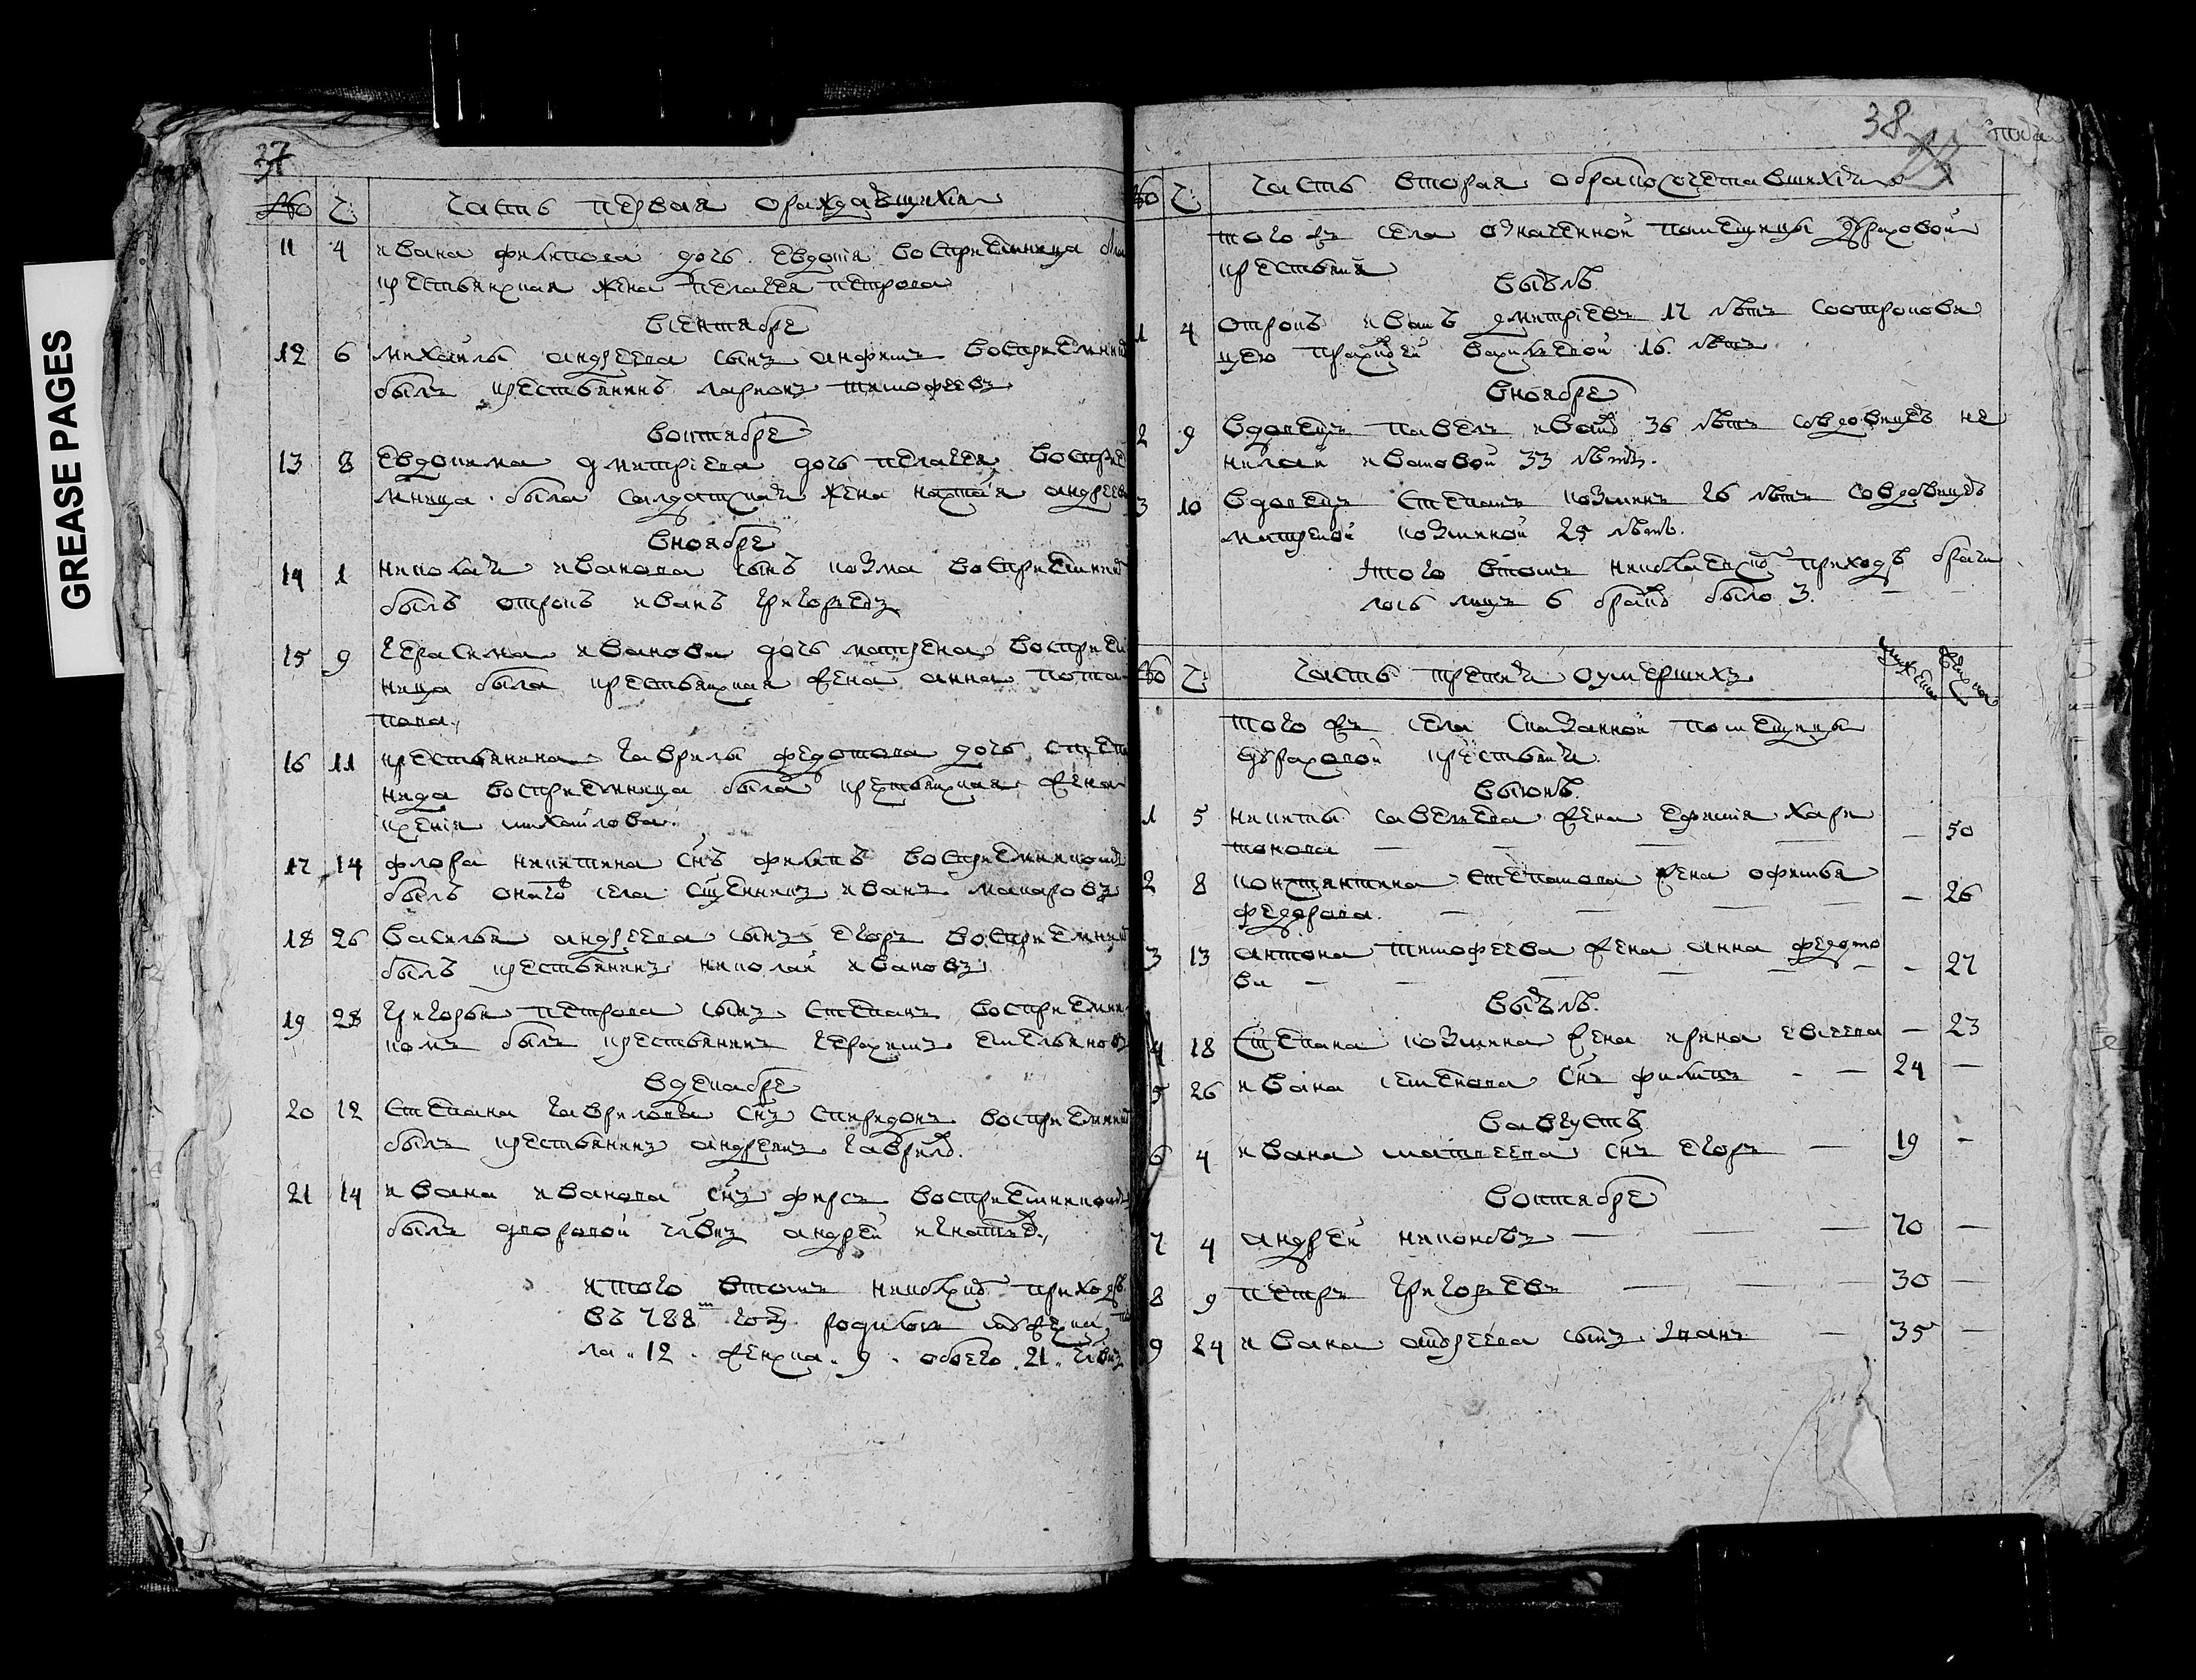 GREASE PAGES
37
№ Ч: Часть первая ораждавшихся
11 4 ивана филипова дочь евдотiя восприемница
крестьянская жена пелагея петрова
всентябре
12 6 михайлы андреева сынъ анфимъ восприемник
былъ крестьянинъ ларионъ тимофеевъ
воктябре
13 8 евдокима дмитрiева дочь пелагея воспрiе
мница была салдатская жена настася андреев
вноябре
14 1 николая иванова сынъ козма восприемник
былъ отрокъ иванъ григорьевъ
15 9 герасима иванова дочь матрена восприем
ница была крестьянская жена анна пота
пова
16 11 крестьянина гаврилы федотова дочь степа
нида восприемница была крестьянская жена
ксенiя михайлова
17 14 флора никитина снъ филипъ восприемникомъ
былъ онагѡ села сщенникъ иванъ макаровъ
18 26 василья андреева сынъ егоръ восприемник
былъ крестьянинъ николай ивановъ
19 28 григорья петрова сынъ степанъ восприемни
комъ былъ крестьянинъ герасимъ емельяновъ
вдекабре
20 12 степана гаврилова снъ спиридонъ восприемник
былъ крестьянинъ андреянъ гаврилѡ
21 14 ивана иванова снъ фирсъ восприемникомъ
былъ дворовой члвкъ андрей игнатьеѡ
итого втомъ никѡлскѡ приходѣ
въ 788м году родилось мужеска по
ла 12 женска 9 обоего 21 члвкъ
38
№ Ч: Часть вторая обракосочетавшихся
того жъ села означенной помещицы дураховой
крестьяня
въiюлѣ
1 4 отрокъ иванъ дмитрiевъ 17 лѣтъ сотрокови
цею праскѡвей васильевой 16 лѣтъ
вноябре
2 9 вдовецъ павелъ иванѡ 36 лѣтъ совдовицеѡ не
нилай ивановой 33 лѣтъ
3 10 вдовецъ степанъ козминъ 26 лѣтъ совдовицеѡ
матреной козминой 25 лѣтъ
итого втомъ николаевскѡ приходѣ брачи
лось лицъ 6 бракѡ было 3
№ Ч: Часть третия оумершихъ мужеска женска
того жъ села сказанной помещицы
дураховой крестьяня
въiюнѣ
1 5 никиты савельева жена ефимiя хари
тонова — 50
2 8 констянтина степанова жена офимья
федорова — 26
3 13 антона тимофеева жена анна федото
ва — 27
въiюлѣ
4 18 степана козмина жена ирина евсеева — 23
5 26 ивана семенова снъ филипъ 24 —
вавгустѣ
6 4 ивана матвеева снъ егоръ 19 —
воктябре
7 4 андрей никоновъ 70 —
8 9 петръ григорьевъ 30 —
9 24 ивана андреева сынъ иванъ 35 —